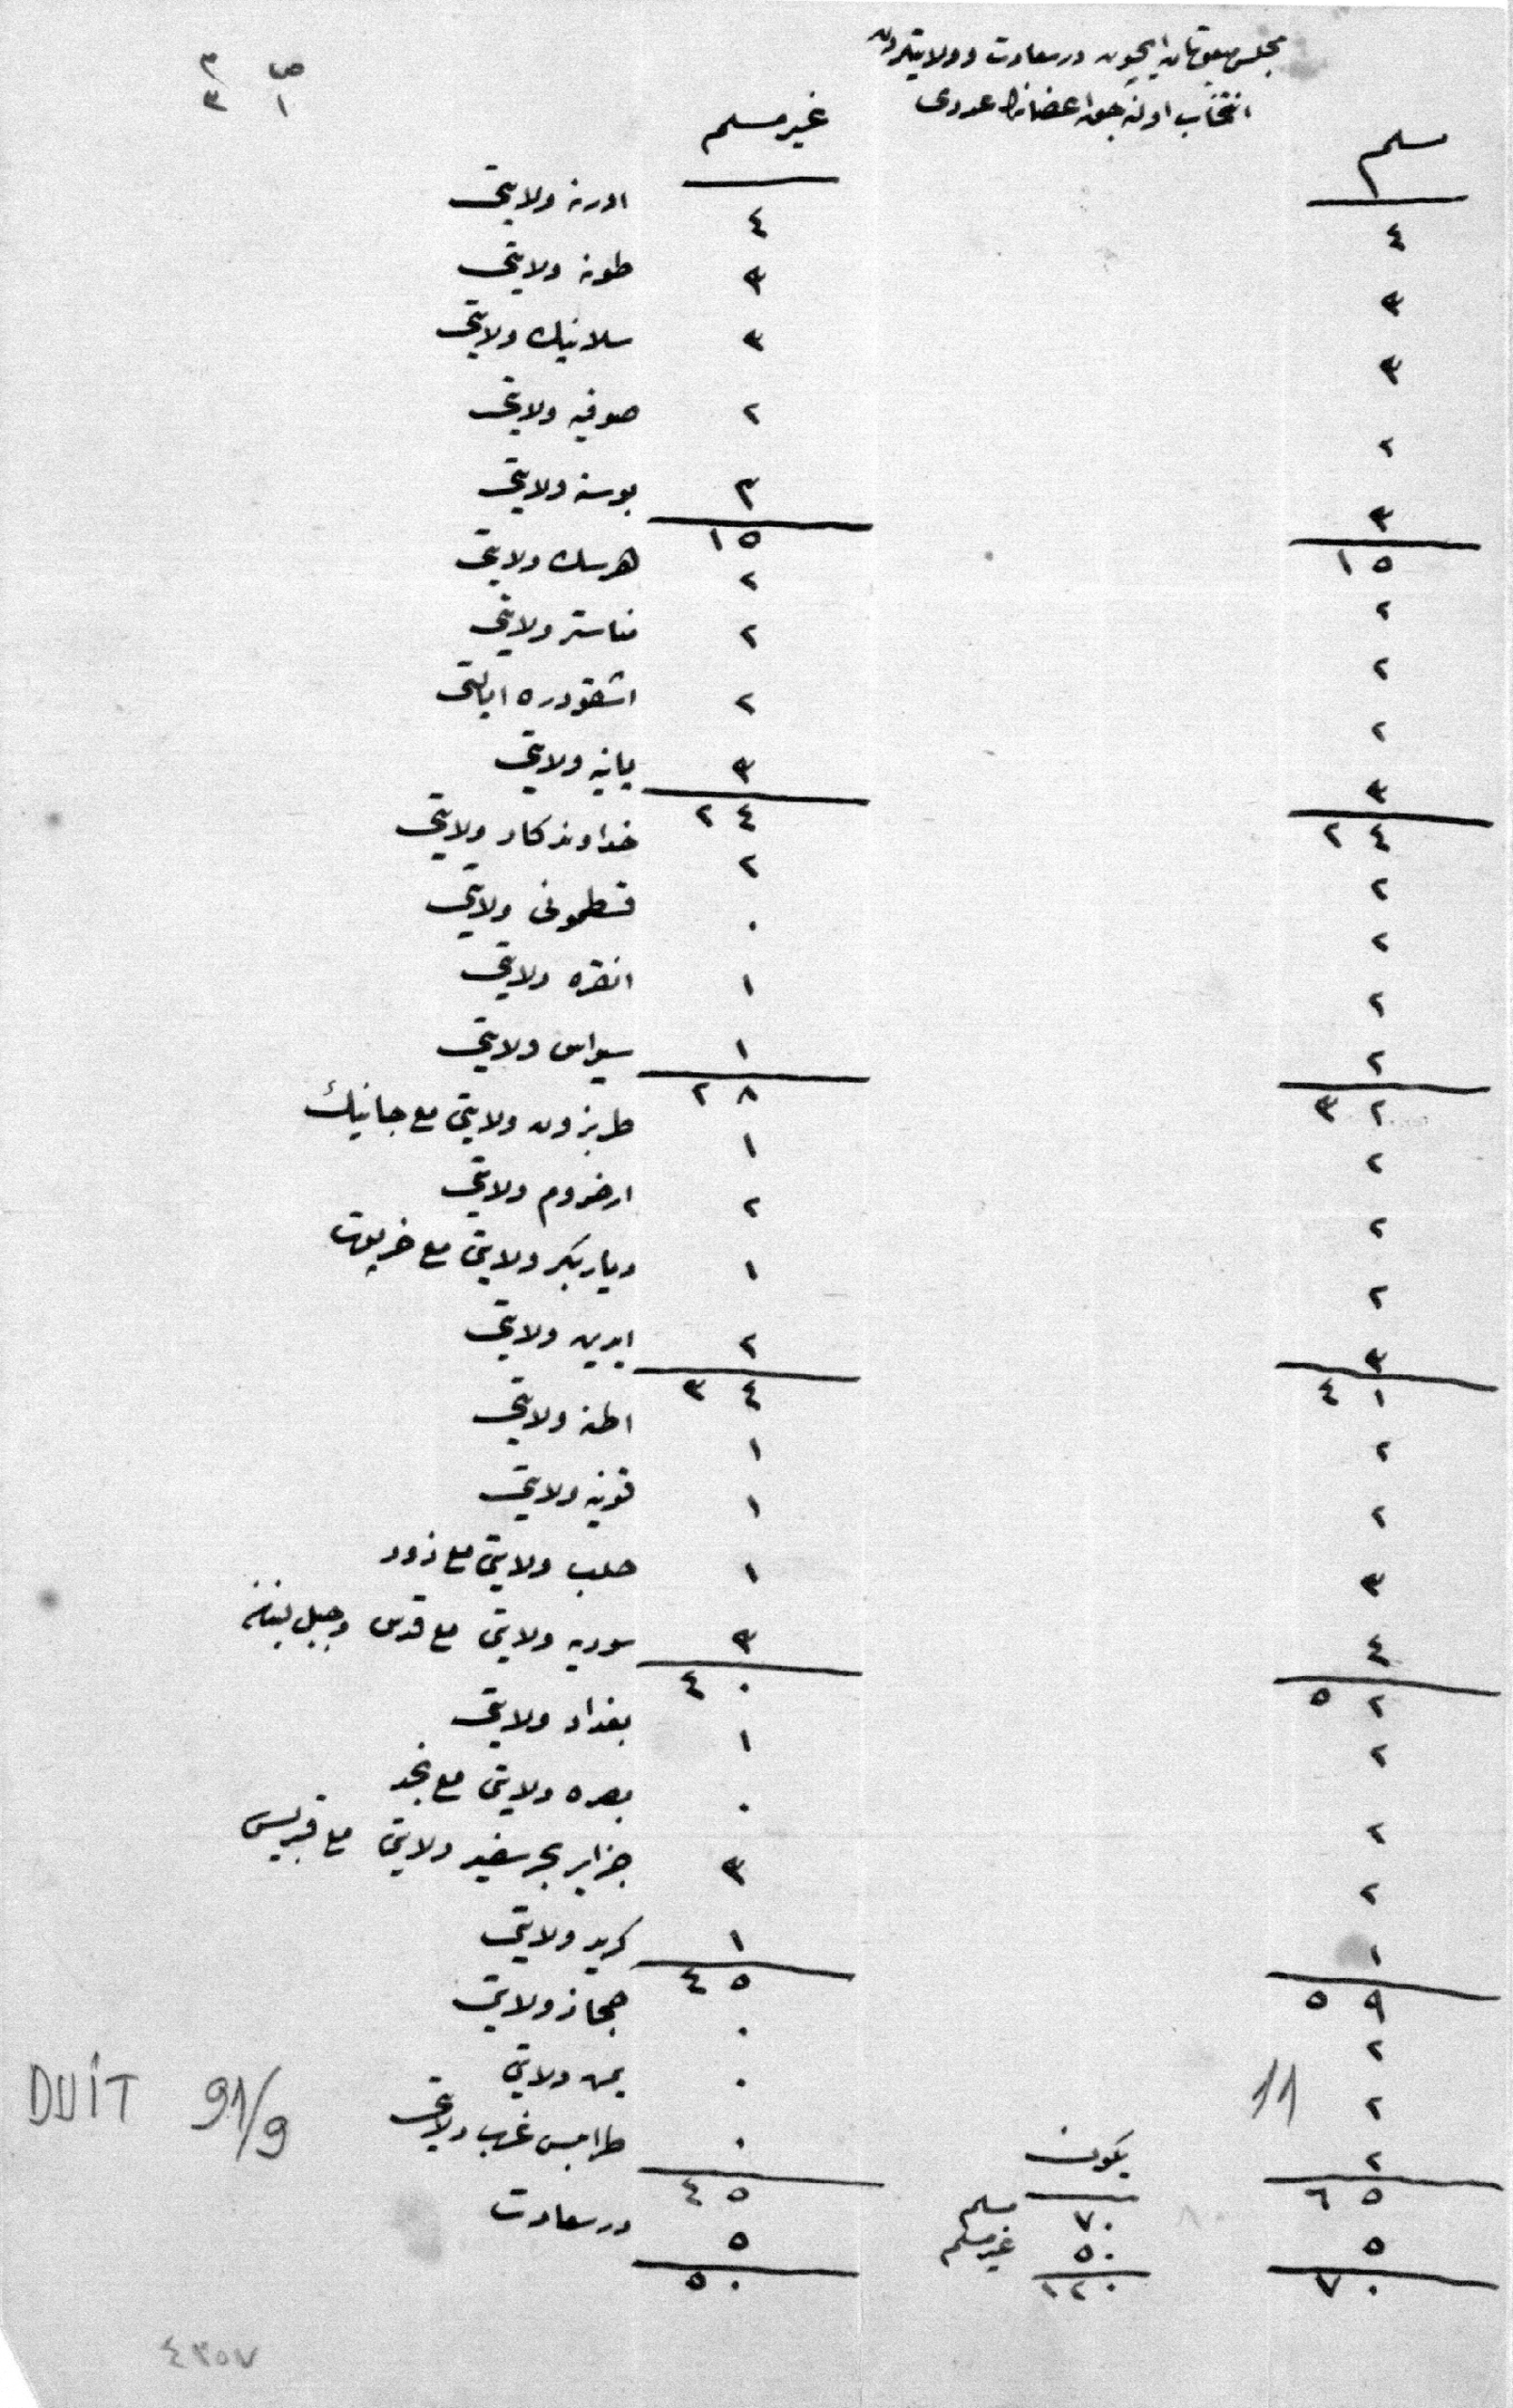 مجلس مبعوثان ایچون درسعادت و ولایتلردن
انتخاب اولنه جق اعضانك عددی
ص ٣
١ ٣
مسلم غیر مسلم
٤ ٤ ادرنه ولایتی
٣ ٣ طونه ولایتی
٣ ٣ سلانیك ولایتی
٢ ٢ صوفیه ولایتی
٣ ٣ بوسنه ولایتی
١٥ ١٥
٢ ٢ هرسك ولایتی
٢ ٢ مناستر ولایتی
٢ ٢ اشقودره ایالتی
٣ ٣ یانیه ولایتی
٢٤ ٢٤
٢ ٢ خداوندكار ولایتی
٢ ٠ قسطمونی ولایتی
٢ ١ انقره ولایتی
٢ ١ سیواس ولایتی
٣٢ ٢٨
٢ ١ طربزون ولایتی مع جانیك
٢ ٢ ارضروم ولایتی
٢ ١ دیاربكر ولایتی مع خرپوت
٣ ٢ ایدین ولایتی
٤١ ٣٤
٢ ١ اطنه ولایتی
٢ ١ قونیه ولایتی
٣ ١ حلب ولایتی مع زور
٤ ٣ سوریه ولایتی مع قدس وجبل لبنان
٥٢ ٤٠
٢ ١ بغداد ولایتی
٢ ٠ بصره ولایتی مع نجد
٢ ٣ جزایر بحر سفید ولایتی مع قبریس
١ ١ كرید ولایتی
٥٩ ٤٥
٢ ٠ حجاز ولایتی
٢ ٠ یمن ولایتی
٢ ٠ طرابلس غرب ولایتی
٦٥ ٤٥
٥ ٥ درسعادت
٧٠ ٥٠
یكون
٧٠ مسلم
٥٠ غیر مسلم
١٢٠
11
DUİT 91/9
٤٣٥٧